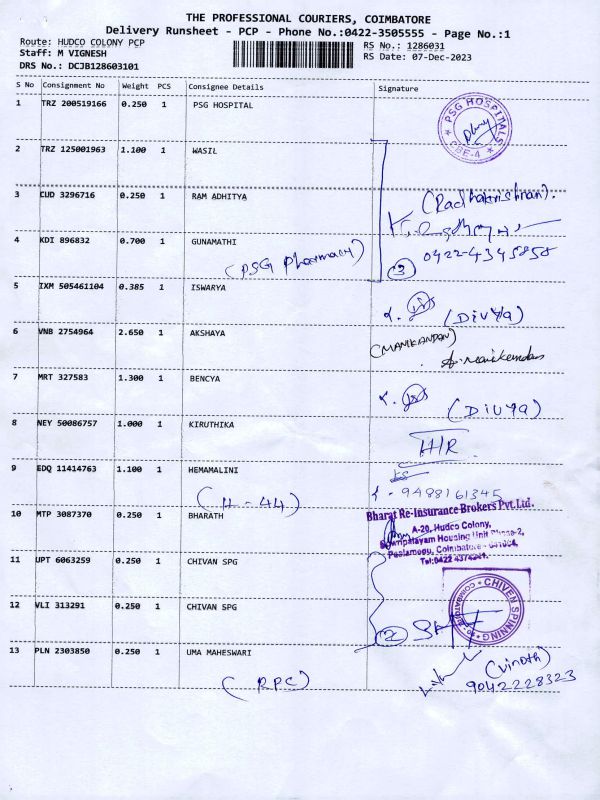 THE PROFESSIONAL COURIERS, COIMBATORE
Delivery Runsheet - PCP - Phone No.:0422-3505555 - Page No.:1
Route: HUDCO COLONY PCP
Staff: M VIGNESH
DRS No.: DCJB128603101
RS No.: 1286031
RS Date: 07-Dec-2023
S No Consignment No Weight PCS Consignee Details Signature
1 TRZ 200519166 0.250 1 PSG HOSPITAL
PSG HOSPITALS
CBE-4
2 TRZ 125001963 1.100 1 WASIL
3 CUD 3296716 0.250 1 RAM ADHITYA
(Radhakrishnan).
4 KDI 896832 0.700 1 GUNAMATHI
(PSG Pharmacy)
0422-4345858
3
5 IXM 505461104 0.385 1 ISWARYA
(Divya)
6 VNB 2754964 2.650 1 AKSHAYA
(MANIKANDAN)
7 MRT 327583 1.300 1 BENCYA
(Divya)
8 NEY 50086757 1.000 1 KIRUTHIKA
9 EDQ 11414763 1.100 1 HEMAMALINI
(H-44)
9488161345
10 MTP 3087370 0.250 1 BHARATH
Bharat Re-Insurance Brokers Pvt.Ltd.
A-20, Hudco Colony,
Housing Unit Phase-2,
Peelamedu, Coimbatore - 641004.
Tel:0422 4374241.
11 UPT 6063259 0.250 1 CHIVAN SPG
12 VLI 313291 0.250 1 CHIVAN SPG
CHIVEN SPINNING
COIMBATORE
2
13 PLN 2303850 0.250 1 UMA MAHESWARI
(RPC)
(Vinoth)
9042228323